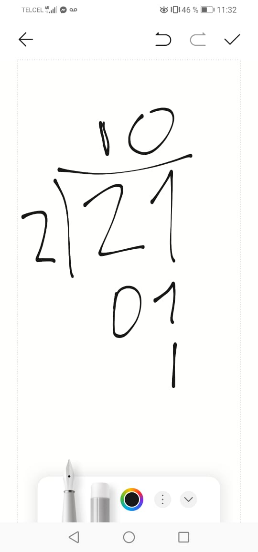 TELCEL 46 % 11:32
10
2 21
01
1